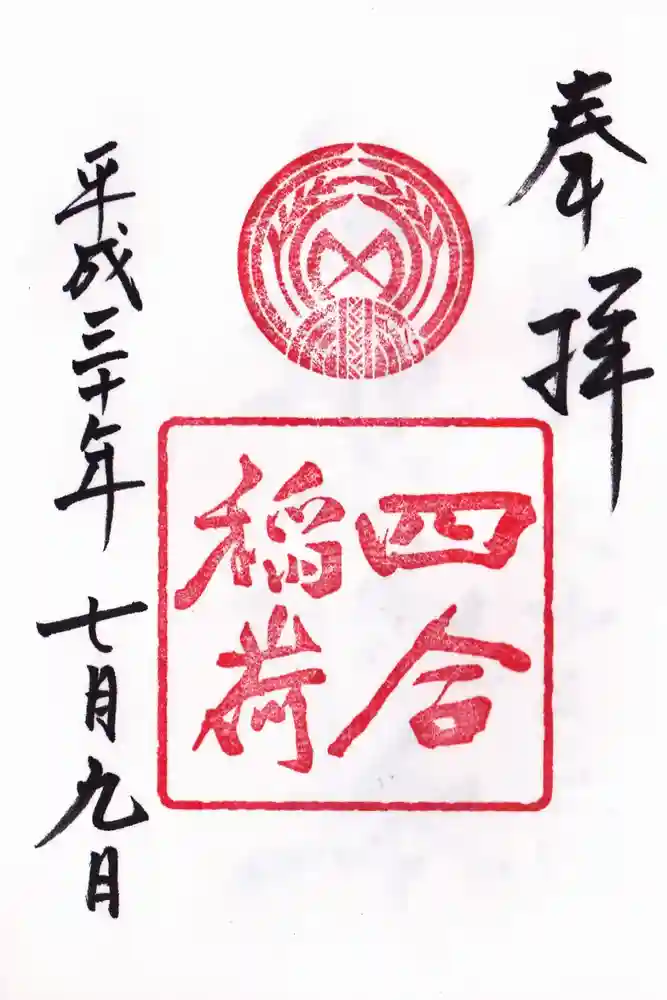 奉拝
四合
稲荷
平成三十年 七月九日